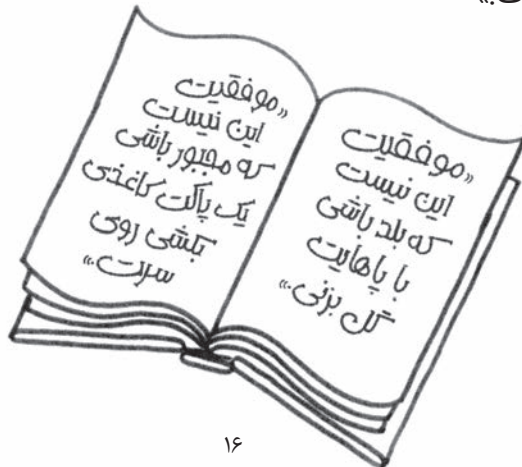 «موفقیت
این نیست
که بلد باشی
با پاهایت
گل بزنی.»
«موفقیت
این نیست
که مجبور باشی
یک پاکت کاغذی
بکشی روی
سرت.»
۱۶